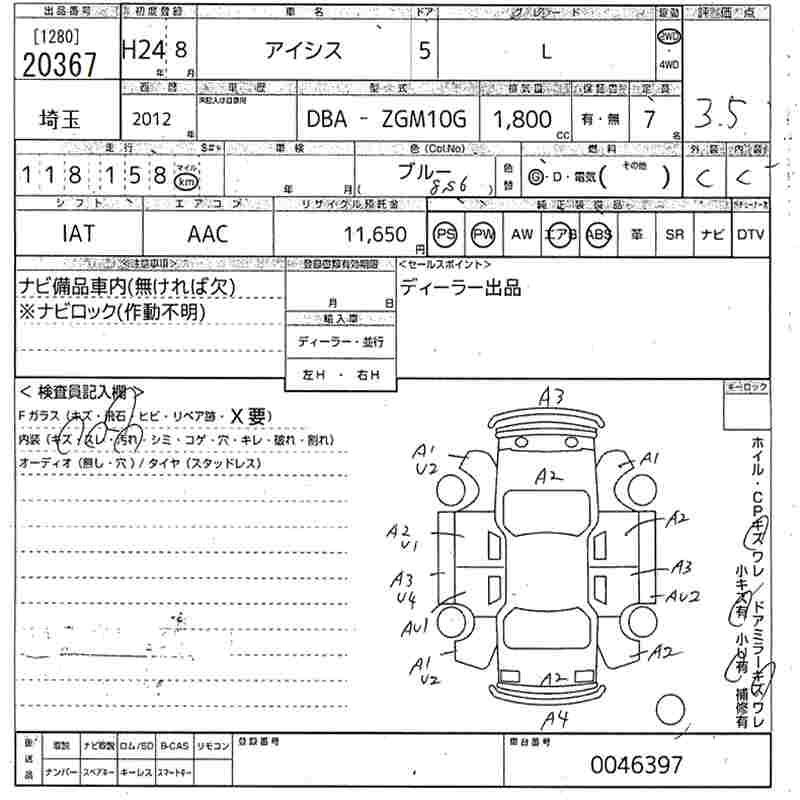 出品番号 初度登録 車名 ドア グレード 駆動 評価点
[1280]
20367 H24年 8月 アイシス 5 L 2WD・4WD
西暦 車歴 型式 排気量 保証書 定員
埼玉 2012年 DBA - ZGM10G 1,800cc 有・無 7名 3.5
走行 S#ﾅ 車検 色(Col.No) 燃料 外装 内装
118158 マイル km 年 月 ブルー 856 色替 G・D・電気(その他) C C
シフト エアコン リサイクル預託金 純正装備品
IAT AAC 11,650円 PS PW AW エアB ABS 革 SR ナビ DTV
<注意事項> 登録書類有効期限 <セールスポイント>
ナビ備品車内(無ければ欠) 月 日 ディーラー出品
※ナビロック(作動不明)
輸入車
ディーラー・並行
左H・右H
<検査員記入欄> キーロック
Fガラス(キズ・飛石・ヒビ・リペア跡・X要)
内装(キズ・スレ・汚れ・シミ・コゲ・穴・キレ・破れ・割れ)
オーディオ(無し・穴)/タイヤ(スタッドレス)
A3
A1
U2
A1
A2
A2
U1
A2
A3
U4
A3
AU2
AU1
A1
U2
A2
A2
A4
ホイル・CPキズワレ/ドアミラーキズワレ
小キズ有 小U有 補修有
後送品 取説 ナビ取説 ロム/SD B-CAS リモコン 登録番号 車台番号
ナンバー スペアキー キーレス スマートキー 0046397